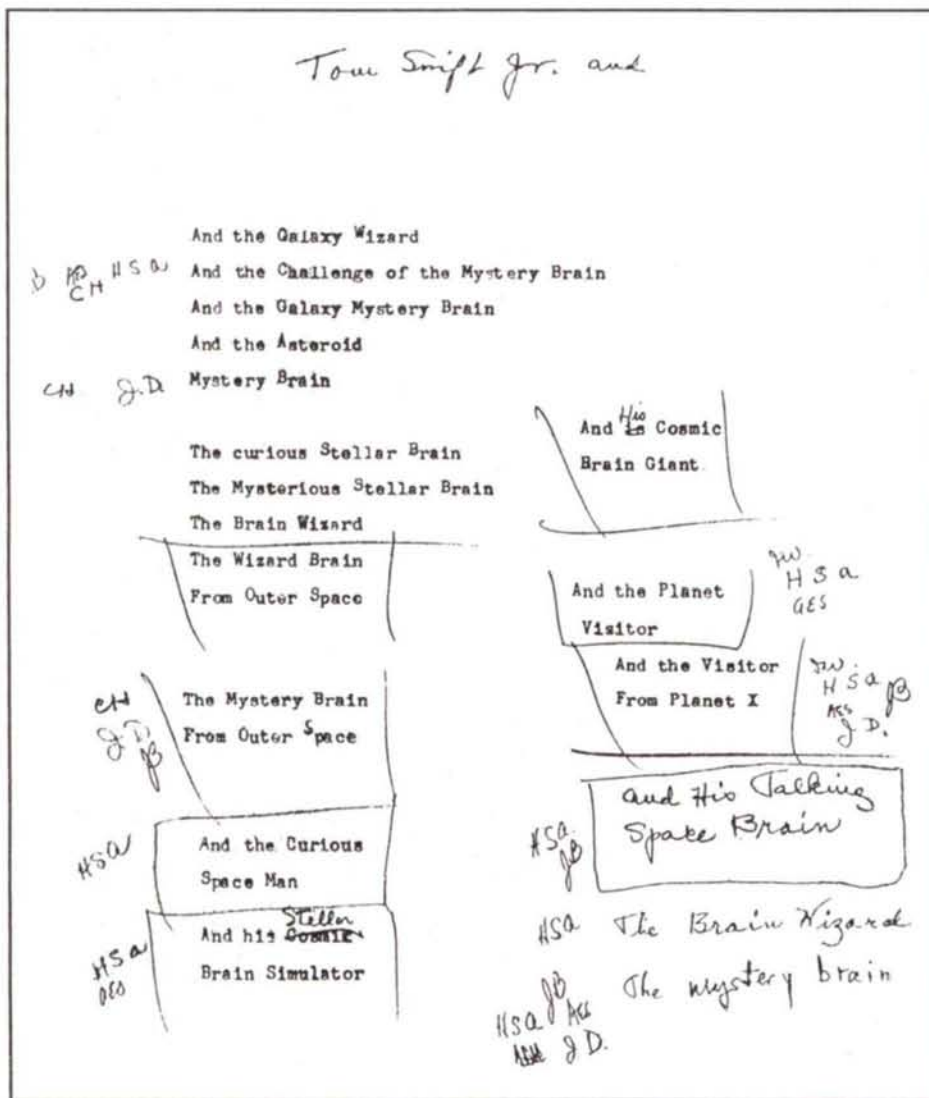 Tom Swift Jr. and
And the Galaxy Wizard
HSA And the Challenge of the Mystery Brain
CH
And the Galaxy Mystery Brain
And the Asteroid
CH J.D. Mystery Brain
The curious Stellar Brain
The Mysterious Stellar Brain
The Brain Wizard
The Wizard Brain
From Outer Space
CH The Mystery Brain
J.D. From Outer Space
JB
HSA And the Curious
Space Man
Stellar
And his Cosmic
HSA Brain Simulator
GES
His
And Cosmic
Brain Giant
JW.
HSA
And the Planet GES
Visitor
And the Visitor JW.
From Planet X HSA JB
AES
J.D.
and His Talking
HSA Space Brain
JB
HSA The Brain Wizard
JB The mystery brain
HSA AES
J.D.